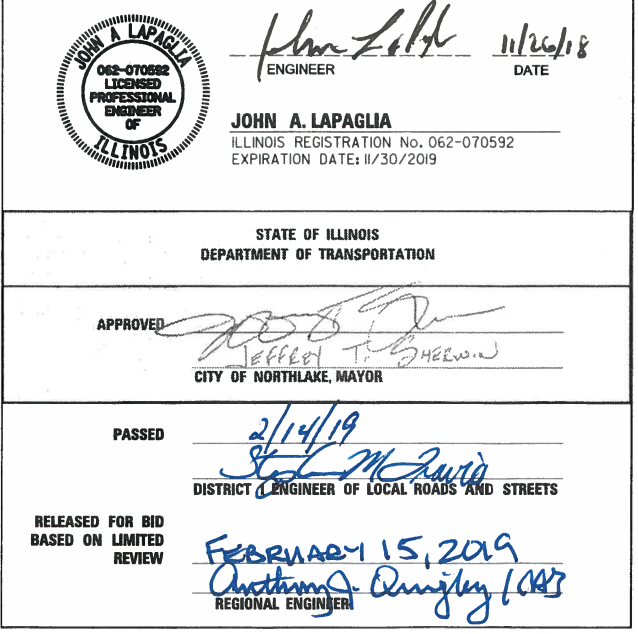 JOHN A LAPAGLIA
062-070592
LICENSED
PROFESSIONAL
ENGINEER
OF
ILLINOIS
11/26/18
ENGINEER DATE
JOHN A. LAPAGLIA
ILLINOIS REGISTRATION No. 062-070592
EXPIRATION DATE: 11/30/2019
STATE OF ILLINOIS
DEPARTMENT OF TRANSPORTATION
APPROVED
JEFFREY T. SHERWIN
CITY OF NORTHLAKE, MAYOR
PASSED 2/14/19
DISTRICT 1 ENGINEER OF LOCAL ROADS AND STREETS
RELEASED FOR BID
BASED ON LIMITED
REVIEW FEBRUARY 15, 2019
Anthony J. Quigley
REGIONAL ENGINEER